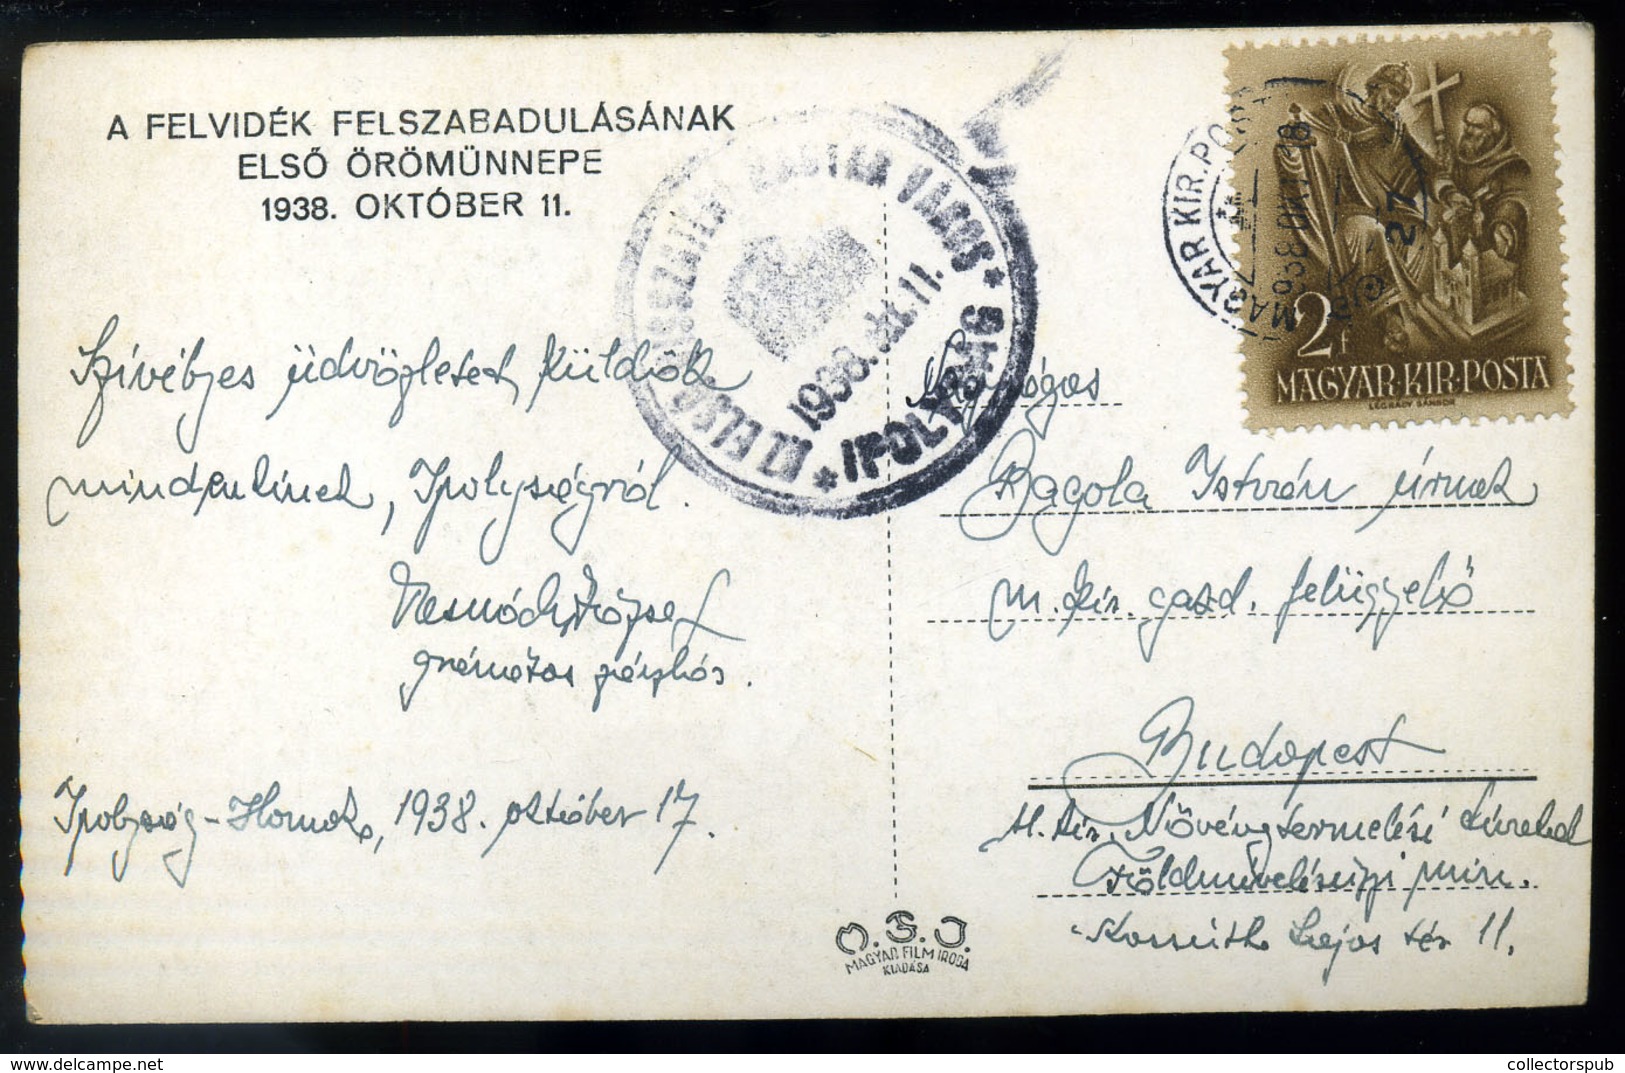 A FELVIDÉK FELSZABADULÁSÁNAK
ELSŐ ÖRÖMÜNNEPE
1938. OKTÓBER 11.
AZ ELSŐ VISSZATÉRT MAGYAR VÁROS
* IPOLYSÁG *
1938. okt. 11.
MAGYAR KIR. POSTA
1938 OKT 18
27
2 f
MAGYAR·KIR·POSTA
LÉGRÁDY SÁNDOR
Szívélyes üdvözletet küldök
mindenkinek, Ipolyságról.
József
Ipolyság-Homok, 1938. október 17.
Bagola István úrnak
m. kir. gazd. felügyelő
Budapest
M. kir. Növénytermelési
Földművelésügyi Min.
Kossuth Lajos tér 11.
M.F.I.
MAGYAR FILM IRODA
KIADÁSA
collectorspub